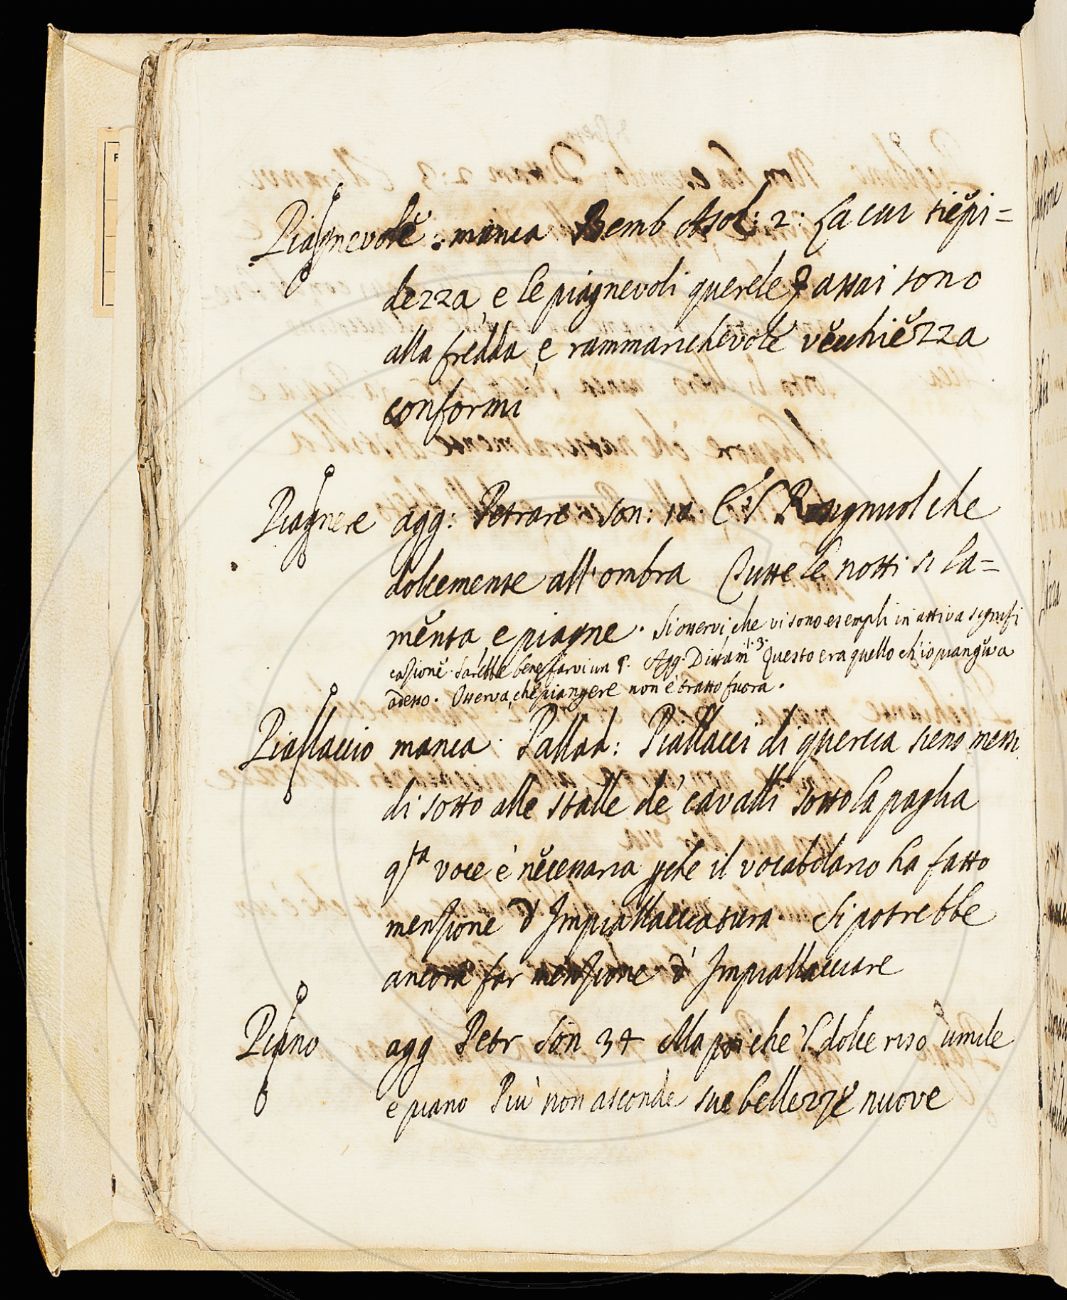 Piagnevole. manca Bemb Asol: 2: La cui tiepi=
dezza, e le piagnevoli querele assai sono
alla fredda, e rammarichevole vecchiezza
conformi
Piagnere agg: Petrarc Son: 10 E'l Rosignuol che
dolcemente all'ombra Tutte le notti si la=
menta, e piagne. Si osservi, che vi sono esempli in attiva signifi
cazione. Sarebbe bene farvi un §. Agg. Dittam 1. 3. Questo era quello ch'io piangeva
adesso. Osserva, che piangere non è tratto fuora.
Piallaccio manca. Pallad: Piallacci di quercia sieno messi
di sotto alle stalle de' cavalli sotto la paglia
qta voce è necessaria pche il vocabolario ha fatto
menzione d' Impiallacciatura. Si potrebbe
ancora far menzione d' Impiallacciare
Piano agg Petr Son 34 Ma poi che'l dolce riso umile
e piano Più non asconde sue bellezze nuove